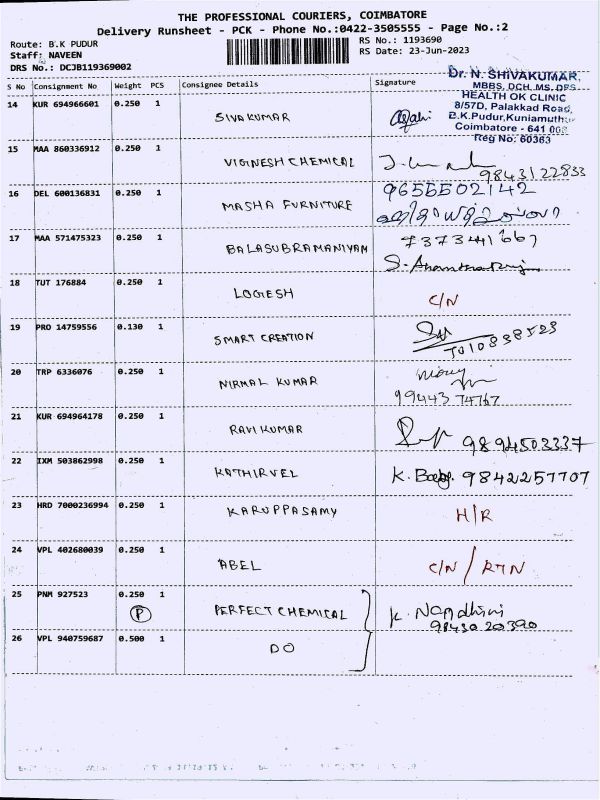 THE PROFESSIONAL COURIERS, COIMBATORE
Delivery Runsheet - PCK - Phone No.:0422-3505555 - Page No.:2
Route: B.K PUDUR RS No.: 1193690
Staff: NAVEEN RS Date: 23-Jun-2023
DRS No.: DCJB119369002
S No Consignment No Weight PCS Consignee Details Signature
Dr. N. SHIVAKUMAR,
MBBS, DCH, MS, DPS
HEALTH OK CLINIC
8/57D, Palakkad Road,
B.K.Pudur,Kuniamuthur
Coimbatore - 641 008
Reg No: 60363
14 KUR 694966601 0.250 1 SIVAKUMAR
15 MAA 860336912 0.250 1 VIGNESH CHEMICAL 9843122833
16 DEL 600136831 0.250 1 MASHA FURNITURE
17 MAA 571475323 0.250 1 BALASUBRAMANIYAM
18 TUT 176884 0.250 1 LOGESH C/N
19 PRO 14759556 0.130 1 SMART CREATION
20 TRP 6336076 0.250 1 NIRMAL KUMAR
99443 74767
21 KUR 694964178 0.250 1 RAVI KUMAR 9894503337
22 IXM 503862998 0.250 1 KATHIRVEL 9842257707
23 HRD 7000236994 0.250 1 KARUPPASAMY H/R
24 VPL 402680039 0.250 1 ABEL C/N / RTN
25 PNM 927523 0.250 1 PERFECT CHEMICAL K. Nandhini
P 98430 20390
26 VPL 940759687 0.500 1 DO